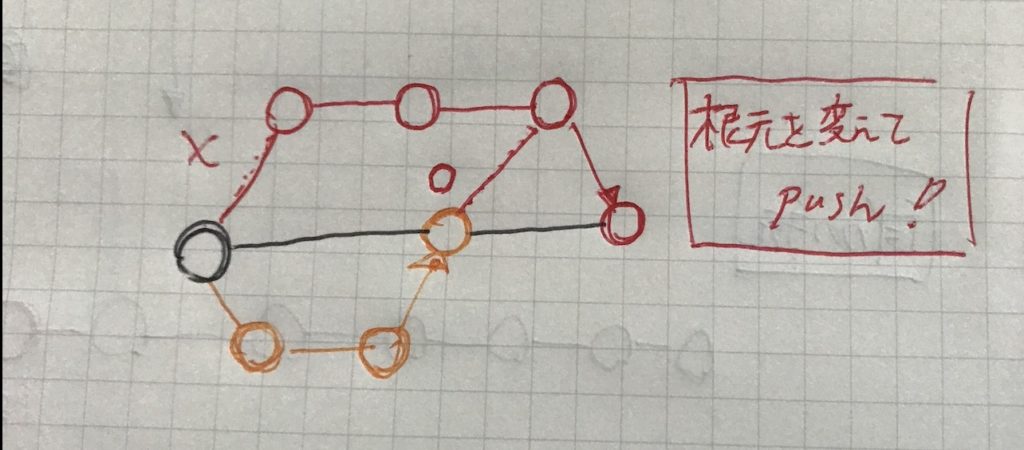 ×
○
根元を変えて
push!